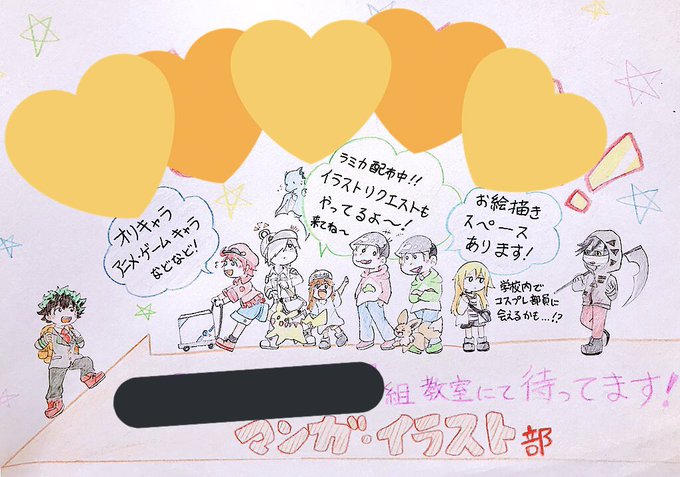 オリキャラ
アニメ・ゲームキャラ
などなど!
ラミカ配布中!!
イラストリクエストも
やってるよ〜!
来てね〜
お絵描き
スペース
あります!
学校内で
コスプレ部員に
会えるかも…!?
組教室にて待ってます!
マンガ・イラスト部